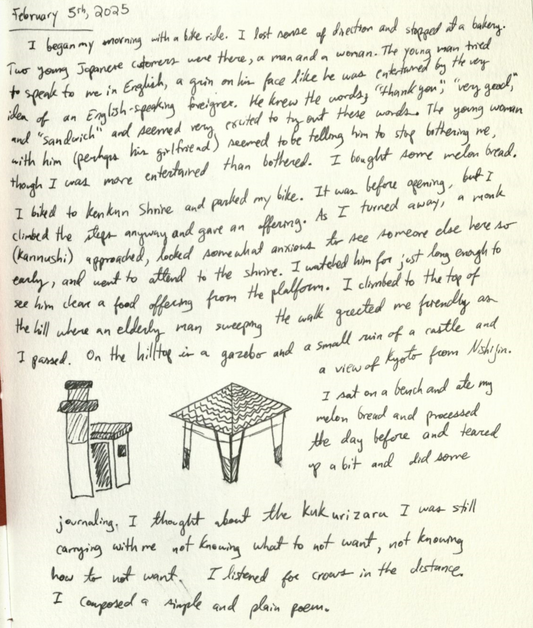 February 5th, 2025
I began my morning with a bike ride. I lost sense of direction and stopped at a bakery.
Two young Japanese customers were there, a man and a woman. The young man tried
to speak to me in English, a grin on his face like he was entertained by the very
idea of an English-speaking foreigner. He knew the words, "thank you," "very good,"
and "sandwich" and seemed very excited to try out these words. The young woman
with him (perhaps his girlfriend) seemed to be telling him to stop bothering me,
though I was more entertained than bothered. I bought some melon bread.
I biked to Kenkun Shrine and parked my bike. It was before opening, but I
climbed the steps anyway and gave an offering. As I turned away, a monk
(kannushi) approached, looked somewhat anxious to see someone else here so
early, and went to attend to the shrine. I watched him for just long enough to
see him clear a food offering from the platform. I climbed to the top of
the hill where an elderly man sweeping the walk greeted me friendly as
I passed. On the hilltop is a gazebo and a small ruin of a castle and
a view of Kyoto from Nishijin.
I sat on a bench and ate my
melon bread and processed
the day before and teared
up a bit and did some
journaling. I thought about the kukurizaru I was still
carrying with me not knowing what to not want, not knowing
how to not want. I listened for crows in the distance.
I composed a simple and plain poem.